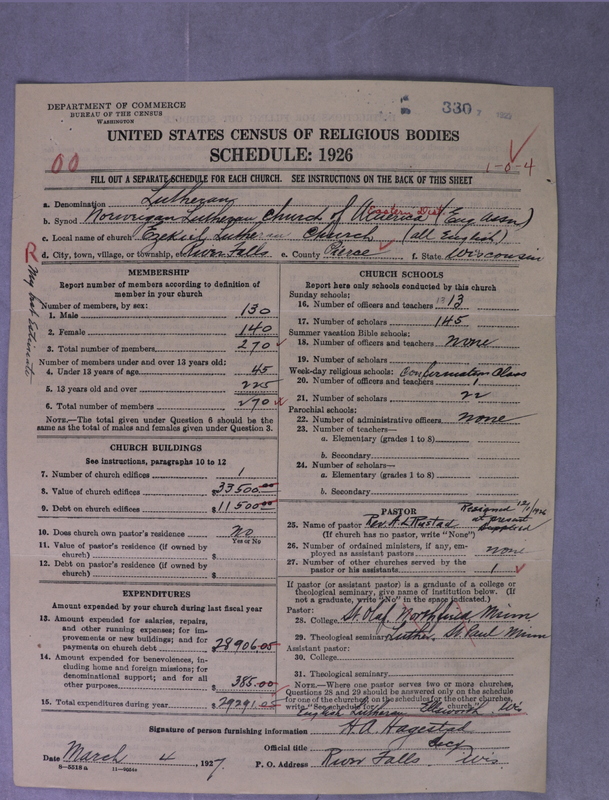 DEPARTMENT OF COMMERCE
BUREAU OF THE CENSUS
WASHINGTON
330
UNITED STATES CENSUS OF RELIGIOUS BODIES
SCHEDULE: 1926
00
1-0-4
FILL OUT A SEPARATE SCHEDULE FOR EACH CHURCH. SEE INSTRUCTIONS ON THE BACK OF THIS SHEET
a. Denomination Lutheran
b. Synod Norwegian Lutheran Church of America Eastern Dist.
c. Local name of church Ezekiel Lutheran Church (all English)
d. City, town, village, or township, etc. River Falls e. County Pierce f. State Wisconsin
R
My best estimate
MEMBERSHIP
Report number of members according to definition of
member in your church
Number of members, by sex:
1. Male 130
2. Female 140
3. Total number of members 270
Number of members under and over 13 years old:
4. Under 13 years of age 45
5. 13 years old and over 225
6. Total number of members 270
NOTE.—The total given under Question 6 should be
the same as the total of males and females given under Question 3.
CHURCH BUILDINGS
See instructions, paragraphs 10 to 12
7. Number of church edifices 1
8. Value of church edifices $33500.00
9. Debt on church edifices $11500.00
10. Does church own pastor's residence? No
Yes or No
11. Value of pastor's residence (if owned by
church) $
12. Debt on pastor's residence (if owned by
church) $
EXPENDITURES
Amount expended by your church during last fiscal year
13. Amount expended for salaries, repairs,
and other running expenses; for im-
provements or new buildings; and for
payments on church debt $28906.05
14. Amount expended for benevolences, in-
cluding home and foreign missions; for
denominational support; and for all
other purposes $385.00
15. Total expenditures during year $29291.05
CHURCH SCHOOLS
Report here only schools conducted by this church
Sunday schools:
16. Number of officers and teachers 13
17. Number of scholars 145
Summer vacation Bible schools:
18. Number of officers and teachers none
19. Number of scholars
Week-day religious schools: Confirmation Class
20. Number of officers and teachers 1
21. Number of scholars 22
Parochial schools:
22. Number of administrative officers none
23. Number of teachers—
a. Elementary (grades 1 to 8)
b. Secondary
24. Number of scholars—
a. Elementary (grades 1 to 8)
b. Secondary
PASTOR
Resigned 12/1/1926
at present
supplied
25. Name of pastor Rev. H. L. Rustad
(If church has no pastor, write "None")
26. Number of ordained ministers, if any, em-
ployed as assistant pastors none
27. Number of other churches served by the
pastor or his assistants 1
If pastor (or assistant pastor) is a graduate of a college or
theological seminary, give name of institution below. (If
not a graduate, write "No" in the space indicated.)
Pastor:
28. College St. Olaf Northfield Minn
29. Theological seminary Luther St. Paul Minn
Assistant pastor:
30. College
31. Theological seminary
NOTE.—Where one pastor serves two or more churches,
Questions 28 and 29 should be answered only on the schedule
for one of the churches; on the schedule for the other churches,
write "See schedule for church."
English Lutheran Ellsworth Wis
Signature of person furnishing information H. A. Hagestad
Official title Secy
Date March 4, 1927.
P. O. Address River Falls Wis.
8—5518a